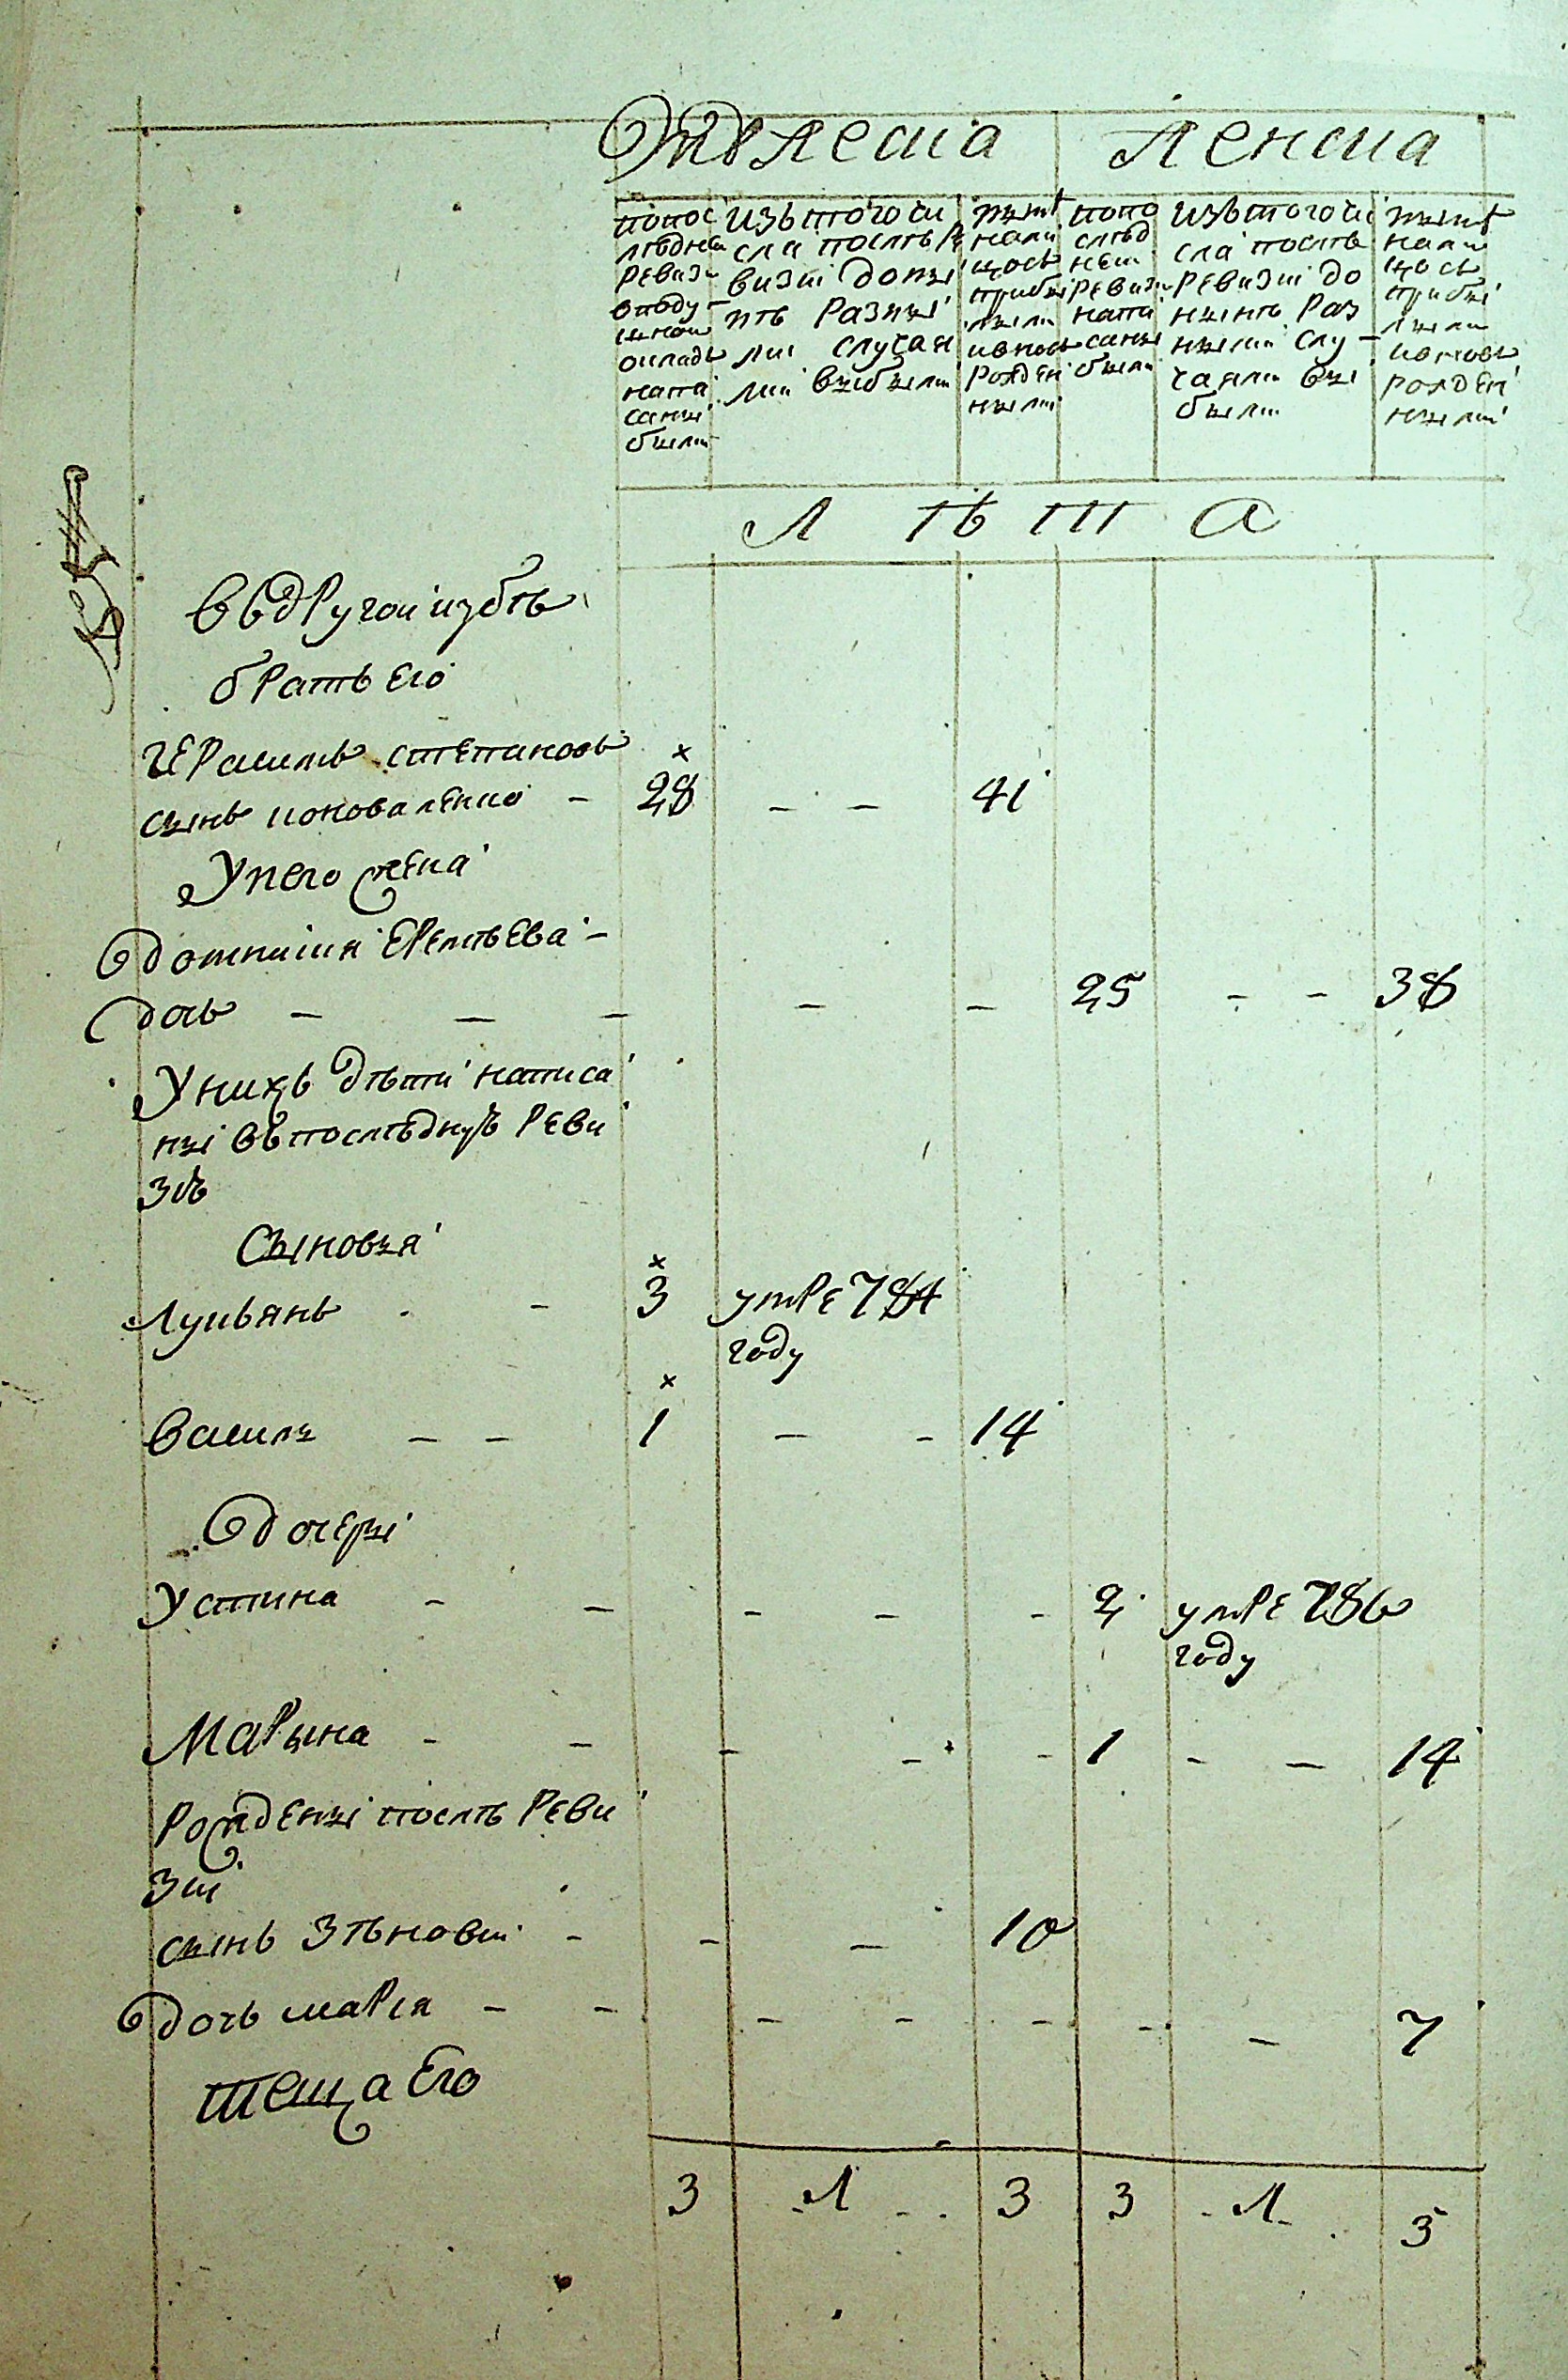 Мужеска Женска
по пос
лѣдней
ревизи
в поду
шном
окладѣ
напи
саны
были
изъ того чи
сла послѣ ре
визіи до ны
нѣ разны
ми случая
ми выбыли
нынѣ
нали
цось
прибы
лыми
и вновь
рожден
ными
по по
слѣд
ней
ревизи
напи
саны
были
изъ того чи
сла послѣ
ревизіи до
нынѣ раз
ными слу
чаями вы
были
нынѣ
нали
цось
прибы
лыми
и вновь
рожден
ными
Л ѣ т а
въ другой избѣ
братъ его
Герасимъ степановъ
сынъ коноваленко - 28 - - 41
У него жена
Домникия Еремѣева -
дочь - - - - - 25 - - 38
У нихъ дѣти написа
ны въ послѣднуѣ реви
зіѣ
Сыновья
Лукьянъ - 3 умре 784
году
василь - - 1 - - 14
Дочеры
Устина - - - - - 2 умре 786
году
Марына - - - - - 1 - - 14
рождены послѣ реви
зіи
сынъ Зѣновій - - - 10
дочь марія - - - - - - - 7
теща Его
3 1 3 3 1 3